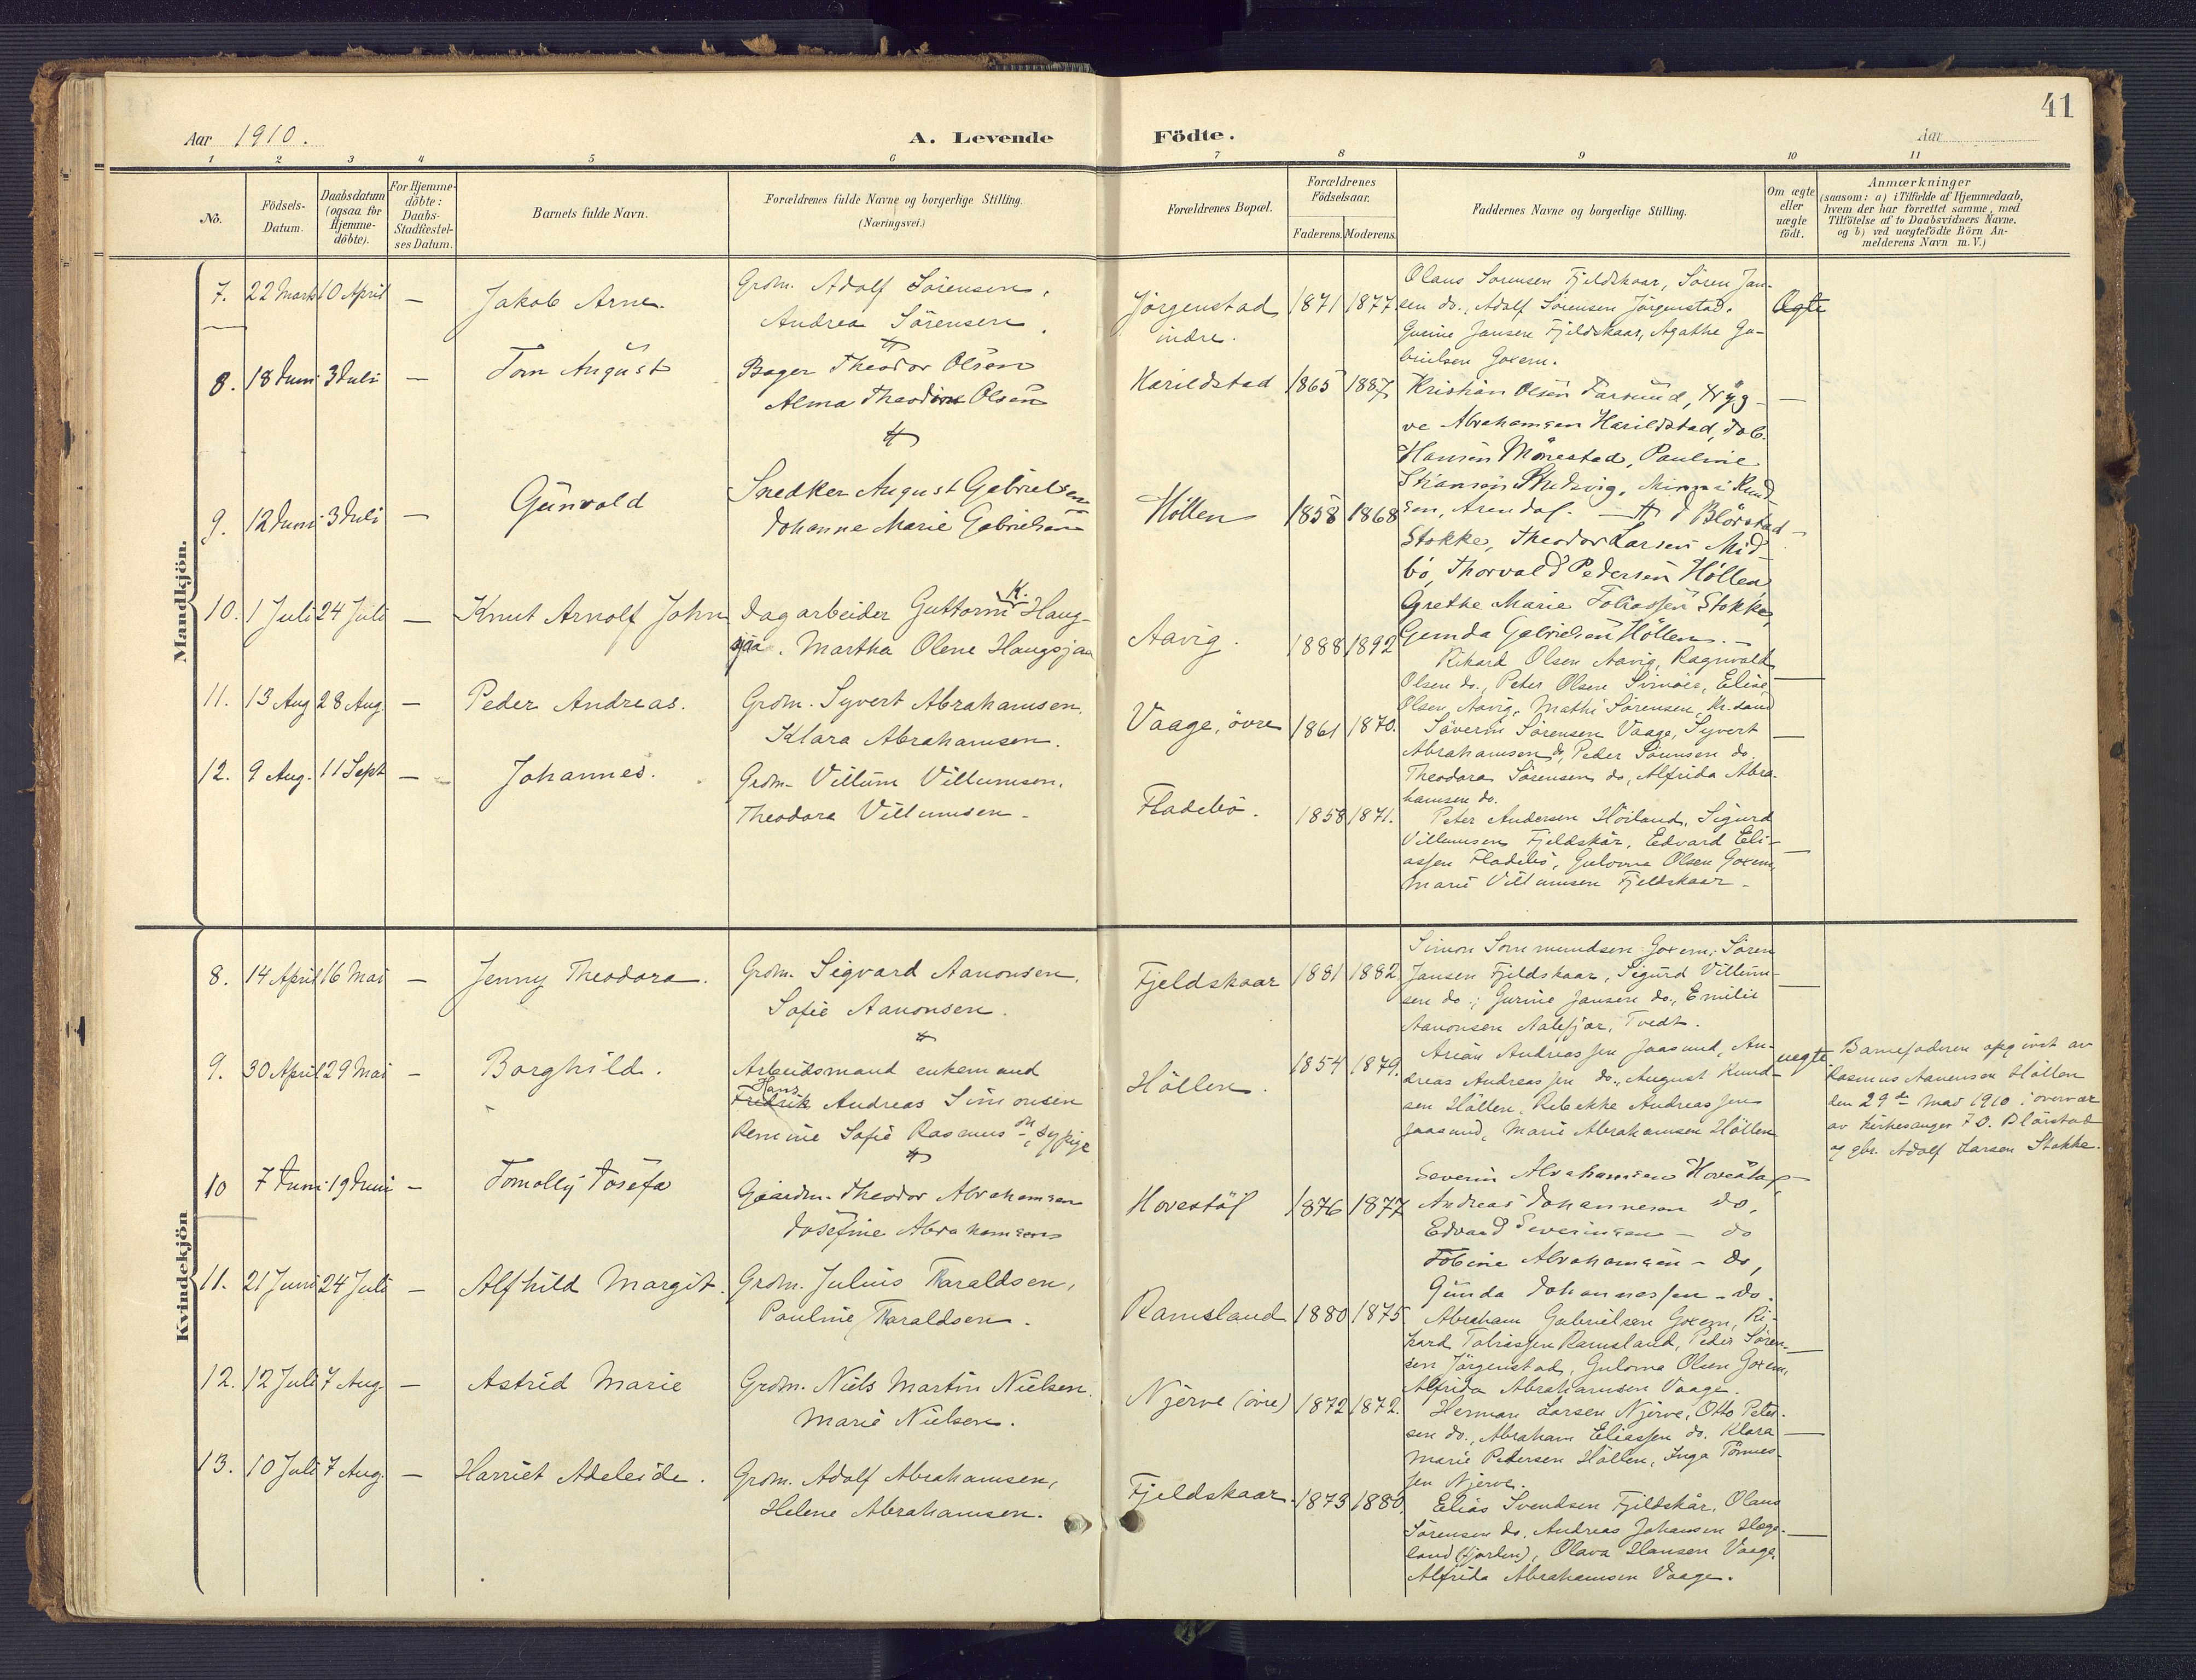 41
Aar 1910.
A. Levende Födte.
Aar
1 2 3 4 5 6 7 8 9 10 11
No.
Födsels-
Datum.
Daabsdatum
(ogsaa for
Hjemme-
döbte).
For Hjemme-
döbte:
Daabs-
Stadfæstel-
ses Datum.
Barnets fulde Navn.
Forældrenes fulde Navne og borgerlige Stilling.
(Næringsvei.)
Forældrenes Bopæl.
Forældrenes
Födselsaar.
Faderens. Moderens.
Faddernes Navne og borgerlige Stilling.
Om ægte
eller
uægte
födt.
Anmærkninger
(saasom: a) i Tilfælde af Hjemmedaab,
hvem der har forrettet samme, med
Tilföielse af to Daabsvidners Navne.
og b) ved uægtefödte Börn An-
melderens Navn m. V.)
Mandkjön.
7. 22 Marts 10 April — Jakob Arne.
Grdm. Adolf Sörensen,
Andrea Sörensen.
Jörgenstad
indre.
1871 1877
Olaus Sörensen Fjeldskaar, Sören Jan-
sen do., Adolf Sörensen Jörgenstad.
Gurine Jansen Fjeldskaar, Agathe Ga-
brielsen Goxem.
Ægte
8. 18 Juni 3 Juli — Tom August
Bager Theodor Olsen
Alma Theodore Olsen
Harildstad
1865 1887
Kristian Olsen Farsund, Tryg-
ve Abrahamsen Harildstad, Job.
Hansen Mönestad, Pauline
Stiansen Skusvig, Minni Knud-
sen, Arendal.
—
9. 12 Juni 3 Juli — Gunvald
Snedker August Gabrielsen
Johanne Marie Gabrielsen
Höllen
1858 1868
Blörstad
Stokke, Theodor Larsen Mid-
bö, Thorvald Pedersen Höllen,
Grethe Marie Tobiassen Stokke,
Gunda Gabrielsen Höllen. —
—
10. 1 Juli 24 Juli — Knut Arnolf John
Dagarbeider Guttorm K. Haug-
sjaa, Martha Olene Haugsjaa
Aavig.
1888 1892
Rikard Olsen Aavig, Ragnvald
Olsen do., Peter Olsen Simöe, Elise
Olsen Aavig, Mathi Sörensen Kr.sand
—
11. 13 Aug 28 Aug. — Peder Andreas.
Grdm. Syvert Abrahamsen,
Klara Abrahamsen.
Vaage, övre
1861 1870.
Söverin Sörensen Vaage, Syvert
Abrahamsen do, Peder Sörensen do.
Theodora Sörensen do, Alfrida Abra-
hamsen do.
—
12. 9 Aug. 11 Sept — Johannes.
Grdm. Villum Villumsen,
Theodora Villumsen.
Fladebö.
1858 1871.
Peter Andersen Höiland, Sigurd
Villumsen Fjeldskår, Edvard Eli-
assen Fladebö, Gulovna Olsen Goxem,
Marie Villumsen Fjeldskaar.
—
Kvindekjön
8. 14 April 16 Mai — Jenny Theodora.
Grdm. Sigvard Aanonsen,
Sofie Aanonsen.
Fjeldskaar
1881 1882
Simon Sommundsen Goxem, Sören
Jansen Fjeldskaar, Sigurd Villum-
sen do., Gurine Jansen do., Emilie
Aanonsen Aalefjær, Tvedt.
—
9. 30 April 29 Mai — Borghild.
Arbeidsmand enkemand
Hans
Fredrik Andreas Simonsen
Remine Sofie Rasmusdtr, sypige
Höllen.
1854 1879.
Arian Andreassen Jaasund, An-
dreas Andreassen do., August Knud-
sen Höllen, Rebekke Andreassen
Jaasund, Marie Abrahamsen Höllen
uegte
Barnefaderen opgivet av
Rasmus Aanensen Höllen
den 29de Mai 1910 i overvær
av Kirkesanger T. O. Blörstad
og gbr. Adolf Larsen Stokke.
10 7 Juni 19 Juni — Tomolly Josefa
Gaardm. Theodor Abrahamsen
Josefine Abrahamsen
Hovestöl
1876 1877
Severin Abrahamsen Hovestöl,
Andreas Johannesen do,
Edvard Severinsen — do
Tobine Abrahamsen — do,
Gunda Johannessen — do.
11. 21 Juni 24 Juli — Alfhild Margit.
Grdm. Julius Taraldsen,
Pauline Taraldsen.
Ramsland
1880 1875
Abraham Gabrielsen Goxem, Ri-
kard Tobiassen Ramsland, Peder Sören-
sen Jörgenstad, Gulovna Olsen Goxem,
Alfrida Abrahamsen Vaage.
—
12. 12 Juli 7 Aug. — Astrid Marie
Grdm. Niels Martin Nielsen,
Marie Nielsen.
Njerve (övre)
1872 1872.
Herman Larsen Njerve, Otto Peter-
sen do., Abraham Eliassen do. Klara
Marie Petersen Höllen, Inga Tönnes-
sen Njerve.
—
13. 10 Juli 7 Aug. — Harriet Adeleide.
Grdm. Adolf Abrahamsen,
Helene Abrahamsen.
Fjeldskaar.
1873 1880.
Elias Svendsen Fjeldskår, Olaus
Sörensen do. Andreas Johansen Hæge-
land (fjorden), Olava Hansen Vaage,
Alfrida Abrahamsen Vaage.
—